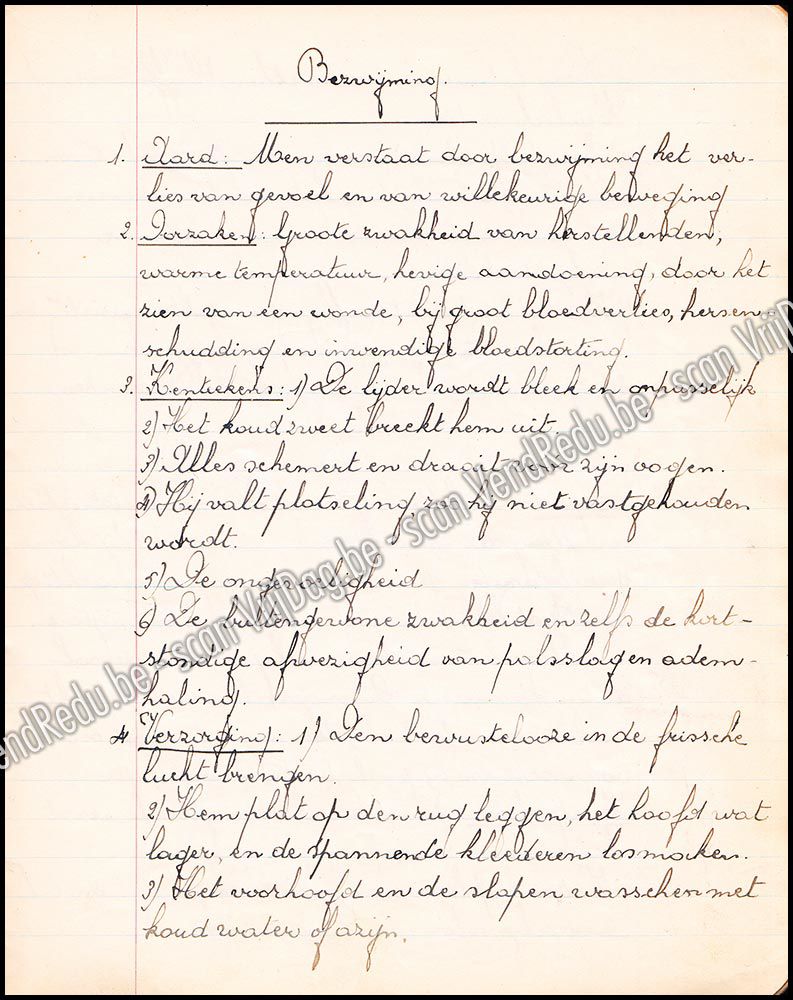 Bezwijming.
1. Aard: Men verstaat door bezwijming het ver-
lies van gevoel en van willekeurige beweging
2. Oorzaken: Groote zwakheid van herstellenden,
warme temperatuur, hevige aandoening, door het
zien van een wonde, bij groot bloedverlies, hersen-
schudding en inwendige bloedstorting.
3. Kentekens: 1) De lijder wordt bleek en onpasselijk
2) Het koud zweet breekt hem uit.
3) Alles schemert en draait voor zijn oogen.
4) Hij valt plotseling, zoo hij niet vastgehouden
wordt.
5) De ongevoeligheid
6) De buitengewone zwakheid en zelfs de kort-
stondige afwezigheid van polsslag en adem-
haling.
4 Verzorging: 1) Den bewustelooze in de frissche
lucht brengen.
2) Hem plat op den rug leggen, het hoofd wat
lager, en de spannende kleederen losmaken.
3) Het voorhoofd en de slapen wasschen met
koud water of azijn.
VendRedu.be - scan VrijDag.be - scan VendRedu.be - scan VrijD